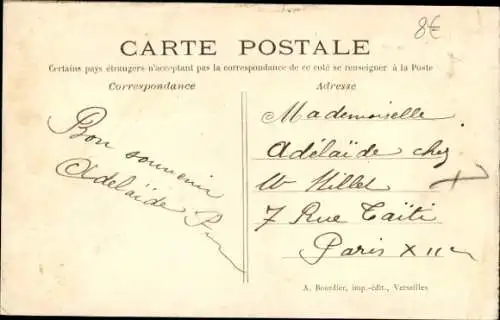 8€
CARTE POSTALE
Certains pays étrangers n'acceptant pas la correspondance de ce coté se renseigner à la Poste
Correspondance
Adresse
Bon souvenir
Adélaïde
Mademoiselle
Adélaïde chez
7 Rue Taïti
Paris XII
A. Bourdier, imp.-édit., Versailles